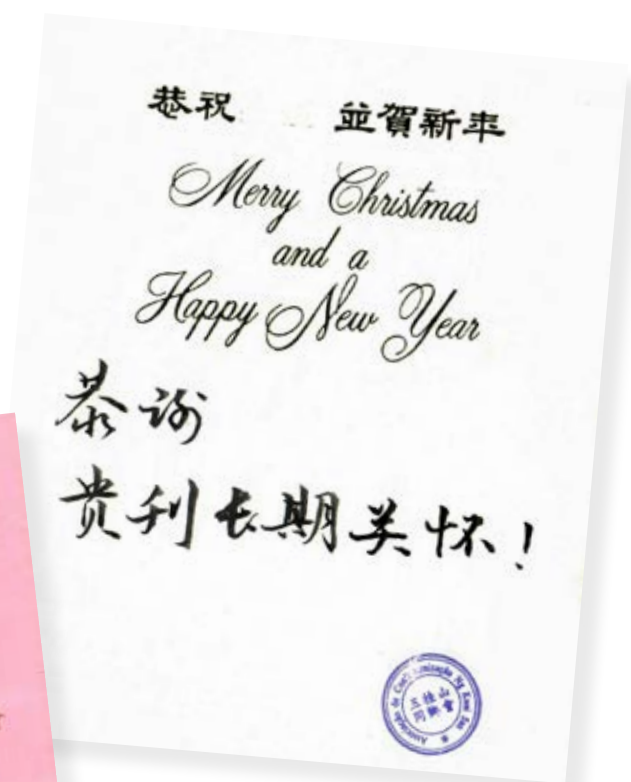 恭祝 並賀新年
Merry Christmas
and a
Happy New Year
恭谢
贵刊长期关怀！
五桂山